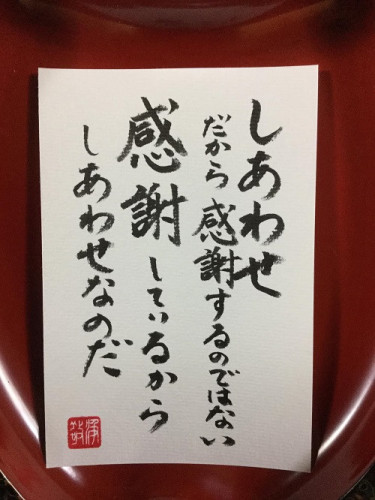 しあわせ
だから感謝するのではない
感謝しているから
しあわせなのだ